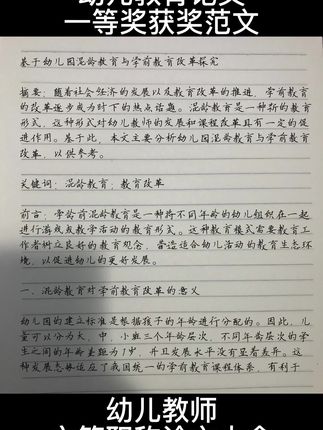 幼儿教育论文
一等奖获奖范文
基于幼儿园混龄教育与学前教育改革探究
摘要：随着社会经济的发展以及教育改革的推进，学前教育
的改革逐步成为时下的热点话题。混龄教育是一种新的教育
形式，这种形式对幼儿教师的发展和课程改革具有一定的促
进作用。基于此，本文主要分析幼儿园混龄教育与学前教育
改革，以供参考。
关键词：混龄教育；教育改革
前言：学龄前混龄教育是一种将不同年龄的幼儿组织在一起
进行游戏或教学活动的教育形式。这种教育模式需要教育工
作者树立良好的教育观念，营造适合幼儿活动的教育生态环
境，以促进幼儿的更好发展。
一、混龄教育对学前教育改革的意义
幼儿园的建立标准是根据孩子的年龄进行分配的。因此，儿
童可以分为大，中，小班三个年龄层次，不同年龄层次的学
生之间的年龄差距为1岁，并且发展水平没有显着差异。这
种发展态势适应了我国统一的学前教育课程体系，有利于
幼儿教师